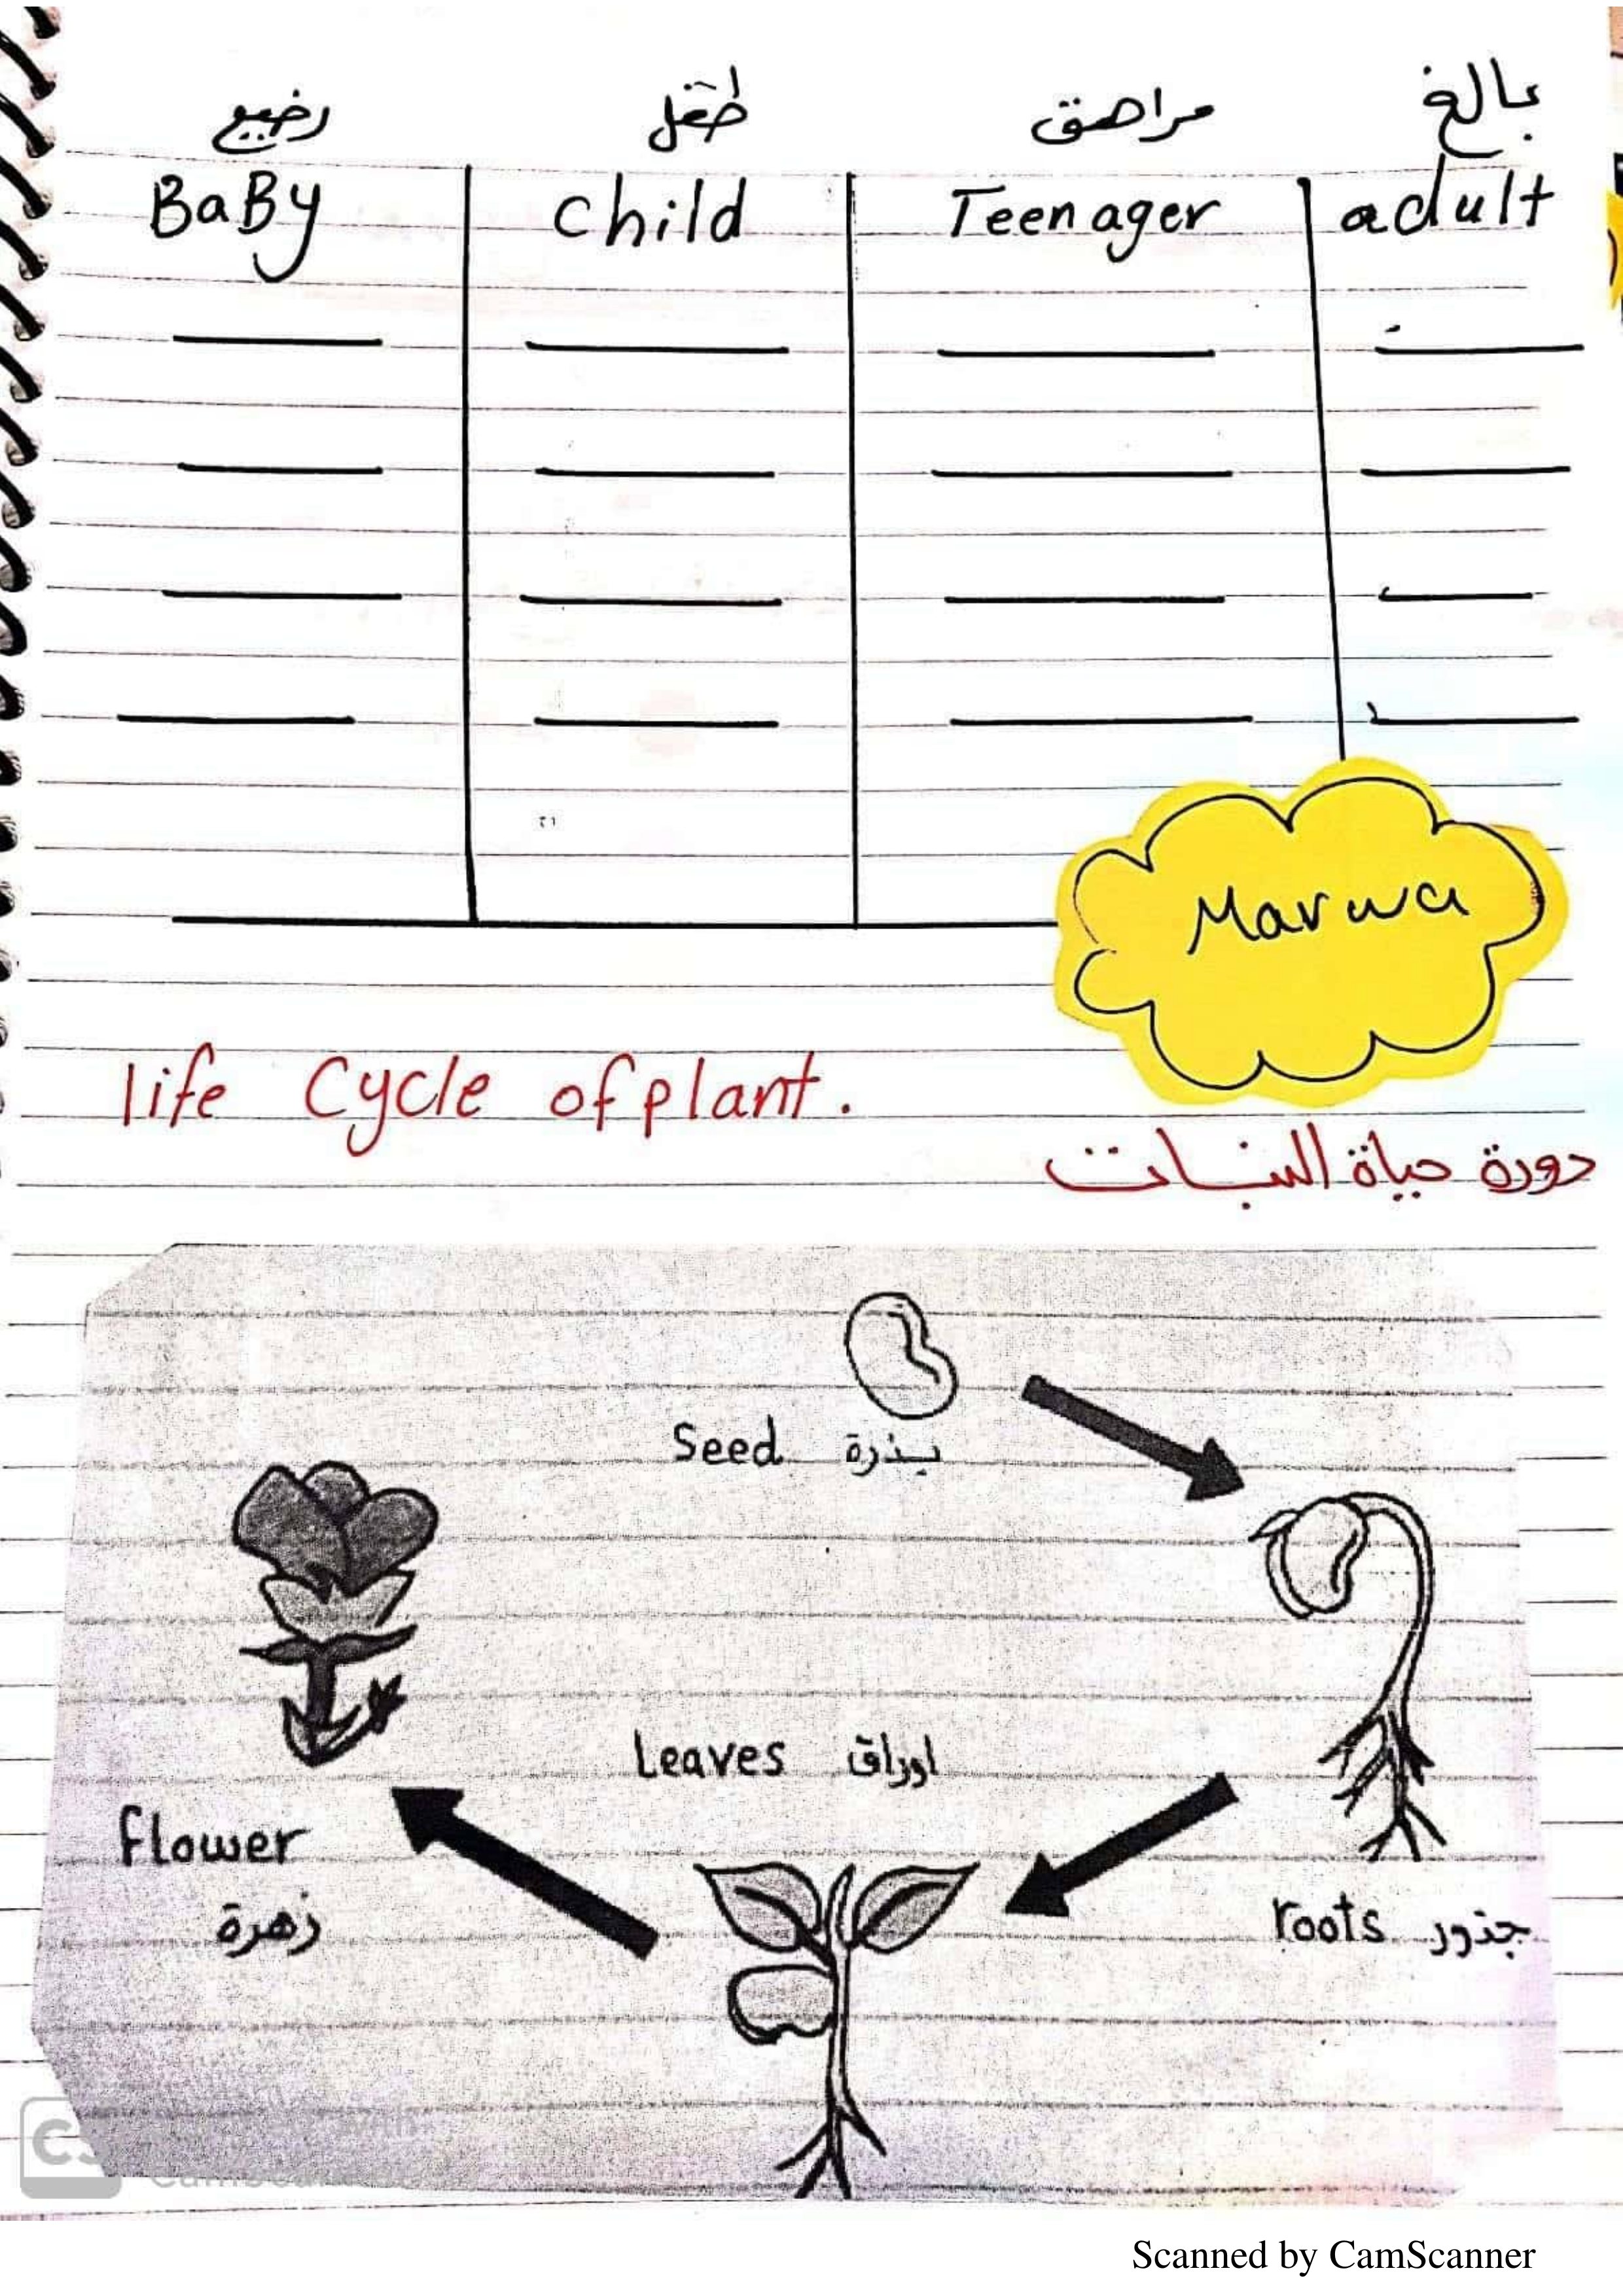 رضيع طفل مراهق بالغ
BaBy child Teenager adult
Marwa
life Cycle of plant.
دورة حياة النبات
Seed بذرة
Leaves اوراق
flower
زهرة
roots جذور
CS
Scanned by CamScanner